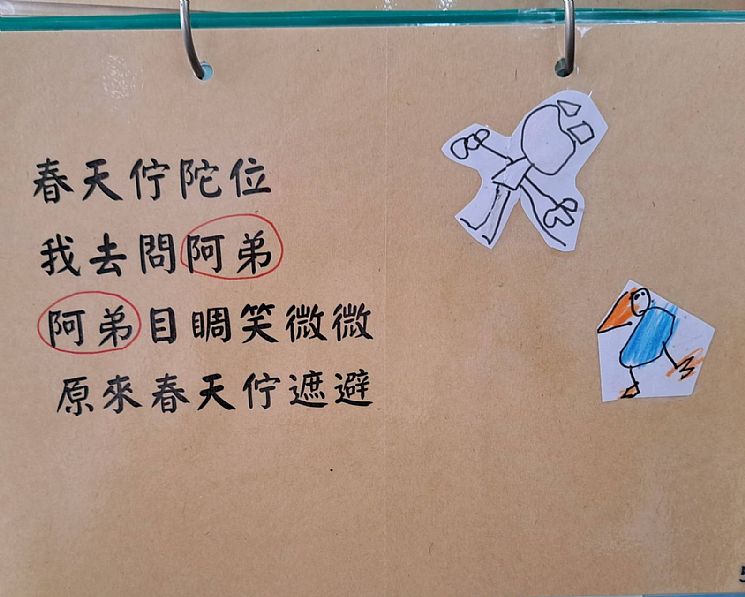 春天佇陀位
我去問阿弟
阿弟目睭笑微微
原來春天佇遮避